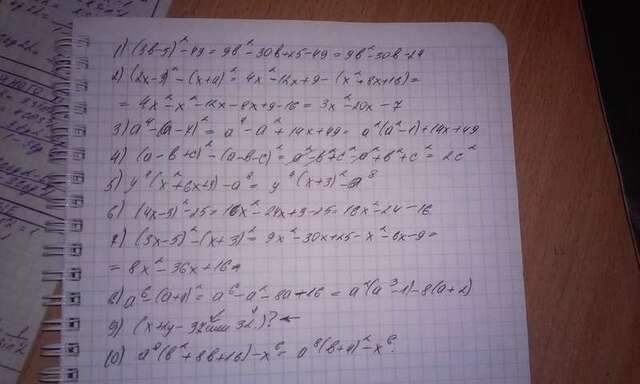 1) (3b-5)²-49 = 9b²-30b+25-49 = 9b²-30b-24
2) (2x-3)²-(x+4)² = 4x²-12x+9-(x²+8x+16) =
= 4x²-x²-12x-8x+9-16 = 3x²-20x-7
3) a⁴-(a-7)² = a⁴-a²+14x+49 = a²(a²-1)+14x+49
4) (a-b+c)²-(a-b-c)² = a²-b²+c²-a²+b²+c² = 2c²
5) y⁴(x²+6x+9)-a⁸ = y⁴(x+3)²-a⁸
6) (4x-3)²-25 = 16x²-24x+9-25 = 16x²-24-16
7) (3x-5)²-(x+3)² = 9x²-30x+25-x²-6x-9 =
= 8x²-36x+16
8) a⁶-(a+4)² = a⁶-a²-8a-16 = a²(a³-1)-8(a+2)
9) (x+y-3z или 3z)? ←
10) a⁸(b²+8b+16)-x⁶ = a⁸(b+4)²-x⁶